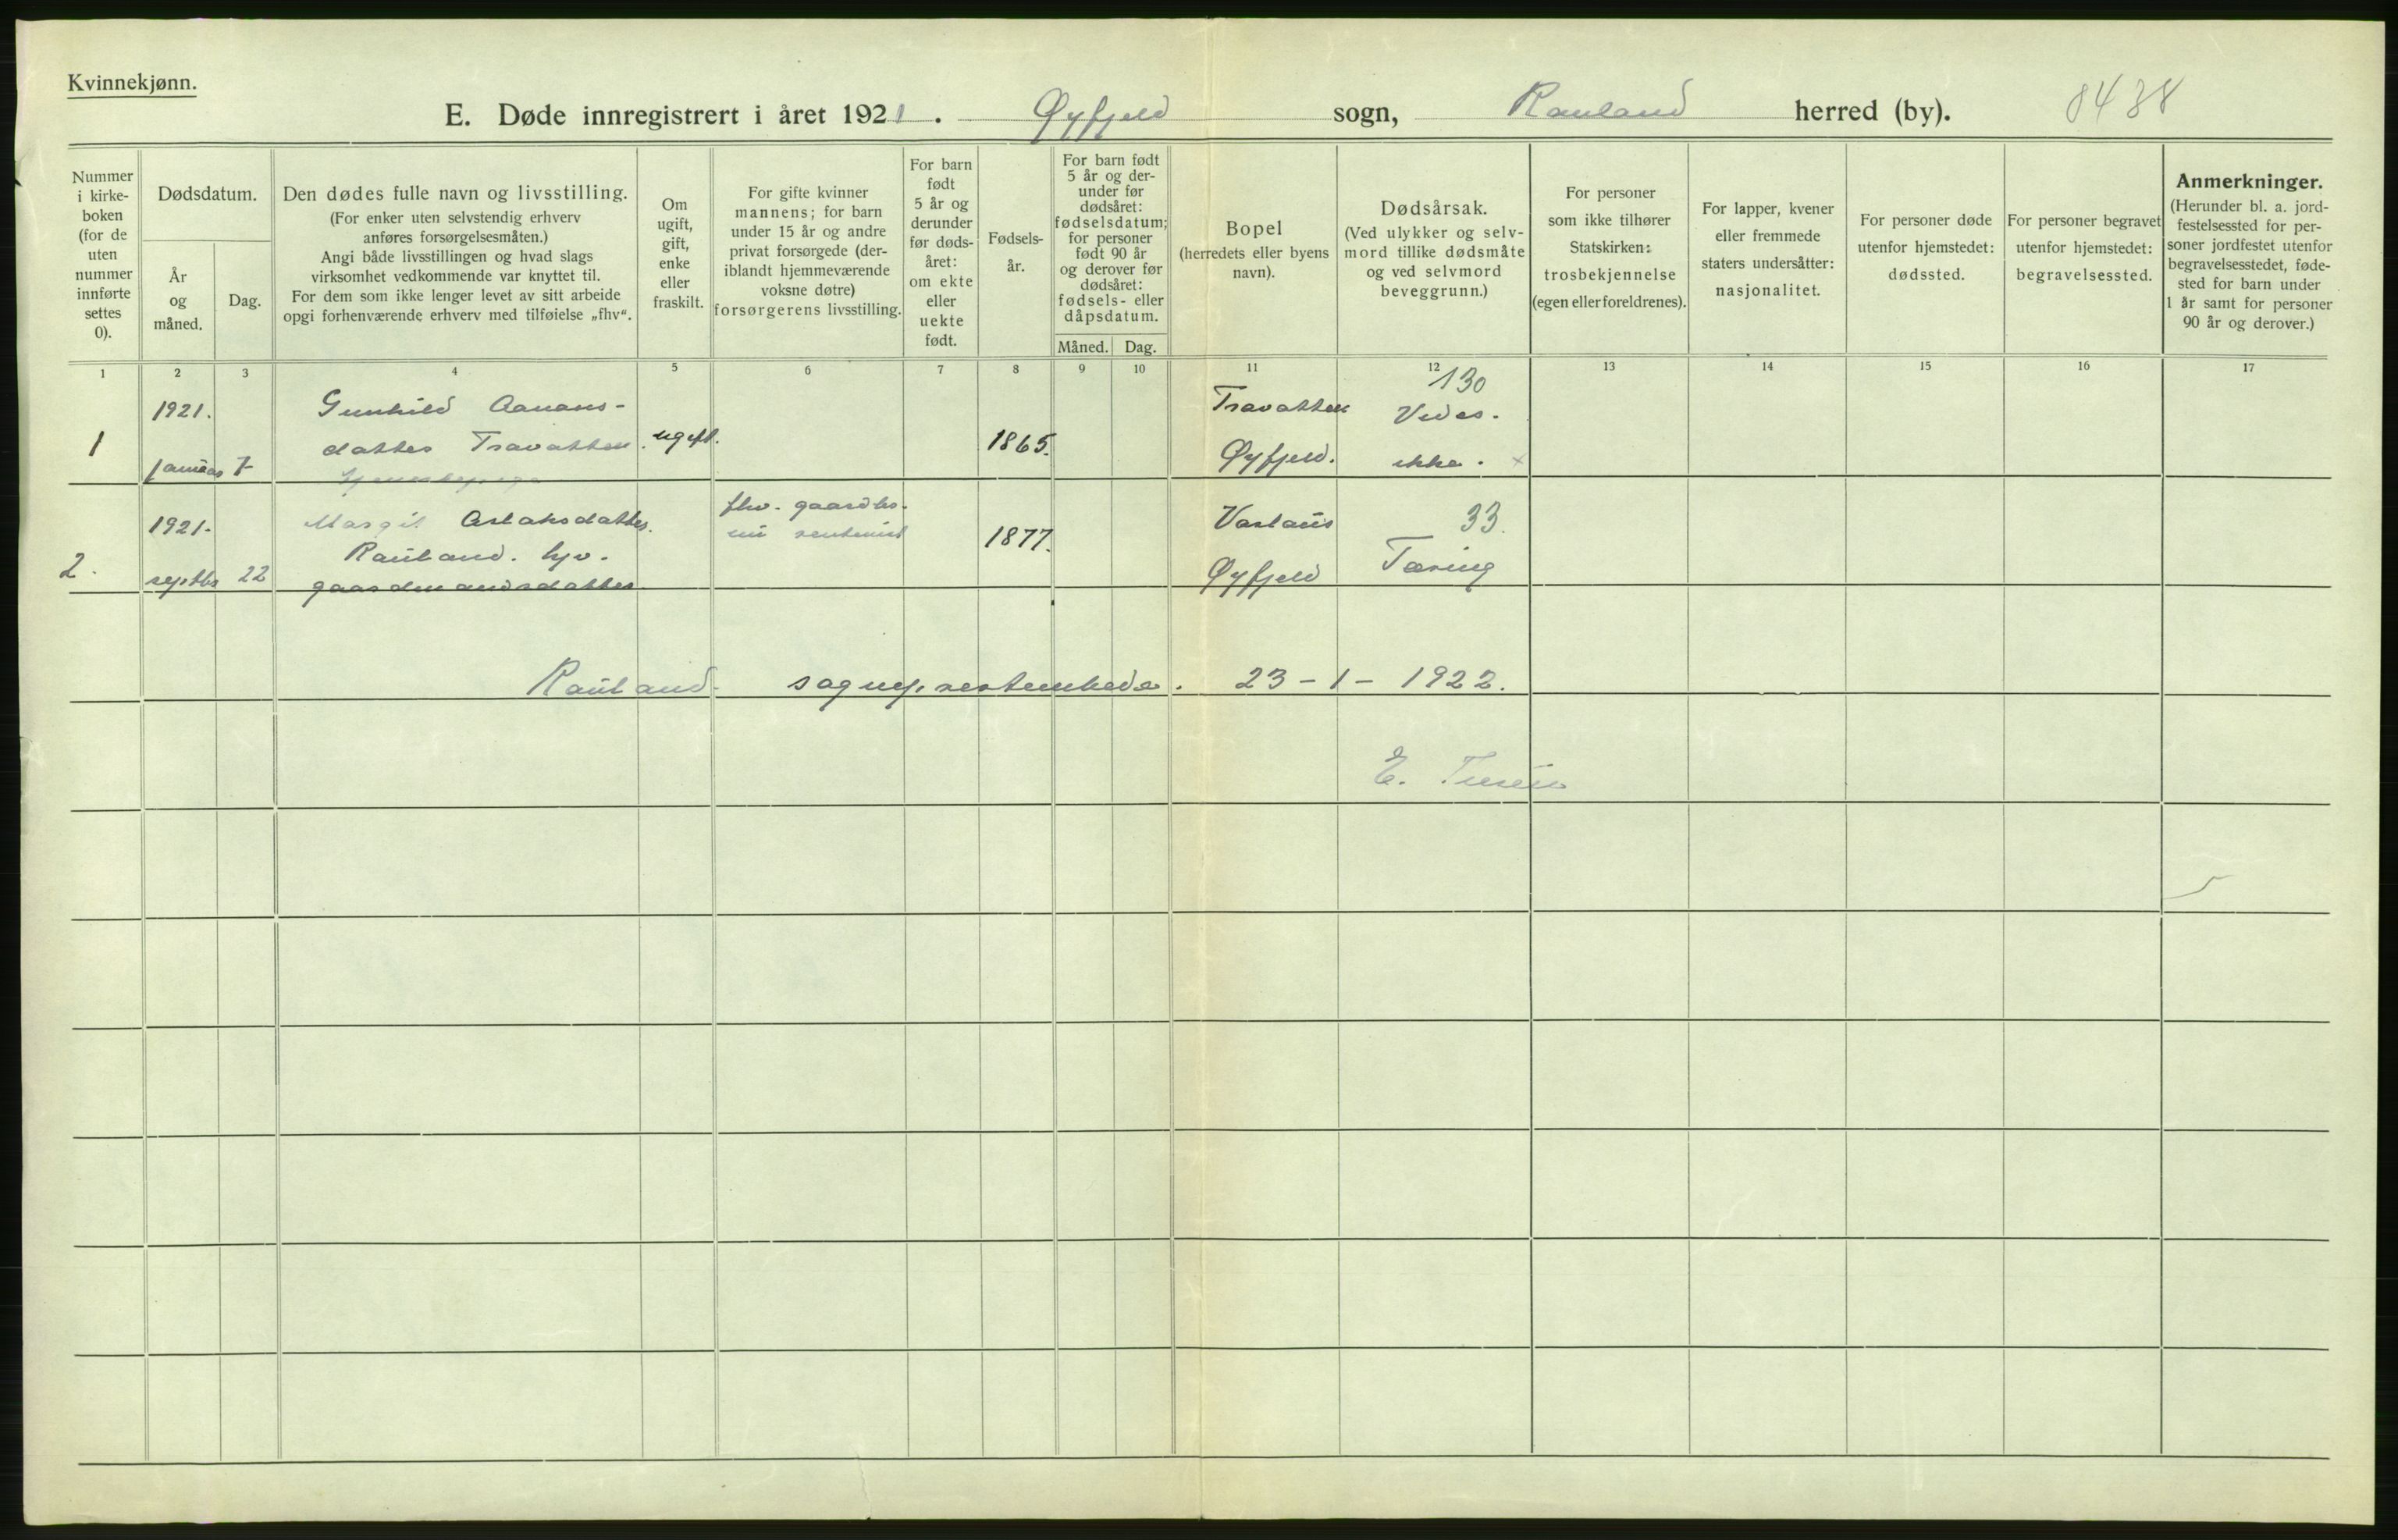 Kvinnekjønn.
E. Døde innregistrert i året 1921. Øyfjeld sogn, Rauland herred (by). 8438
Nummer
i kirke-
boken
(for de
uten
nummer
innførte
settes
0).
Dødsdatum.
År
og
måned.
Dag.
Den dødes fulle navn og livsstilling.
(For enker uten selvstendig erhverv
anføres forsørgelsesmåten.)
Angi både livsstillingen og hvad slags
virksomhet vedkommende var knyttet til.
For dem som ikke lenger levet av sitt arbeide
opgi forhenværende erhverv med tilføielse „fhv“.
Om
ugift,
gift,
enke
eller
fraskilt.
For gifte kvinner
mannens; for barn
under 15 år og andre
privat forsørgede (der-
iblandt hjemmeværende
voksne døtre)
forsørgerens livsstilling.
For barn
født
5 år og
derunder
før døds-
året:
om ekte
eller
uekte
født.
Fødsels-
år.
For barn født
5 år og der-
under før
dødsåret:
fødselsdatum;
for personer
født 90 år
og derover før
dødsåret:
fødsels- eller
dåpsdatum.
Måned. Dag.
Bopel
(herredets eller byens
navn).
Dødsårsak.
(Ved ulykker og selv-
mord tillike dødsmåte
og ved selvmord
beveggrunn.)
For personer
som ikke tilhører
Statskirken:
trosbekjennelse
(egen eller foreldrenes).
For lapper, kvener
eller fremmede
staters undersåtter:
nasjonalitet.
For personer døde
utenfor hjemstedet:
dødssted.
For personer begravet
utenfor hjemstedet:
begravelsessted.
Anmerkninger.
(Herunder bl. a. jord-
festelsessted for per-
soner jordfestet utenfor
begravelsesstedet, føde-
sted for barn under
1 år samt for personer
90 år og derover.)
1 2 3 4 5 6 7 8 9 10 11 12 13 14 15 16 17
1
1921.
januar 7
Gunhild Aanans-
datter Travatten.
ugift.
1865.
Travatten
Øyfjeld.
130
Vides.
ikke.
2.
1921.
septbr 22
Margit Aslaksdatter.
Rauland. hjv.
gaardmandsdatter
fhv. gaardbr.
nu rentenist
1877.
Øyfjeld
33.
Tæring
Rauland sogneprestembede. 23-1-1922.
E.